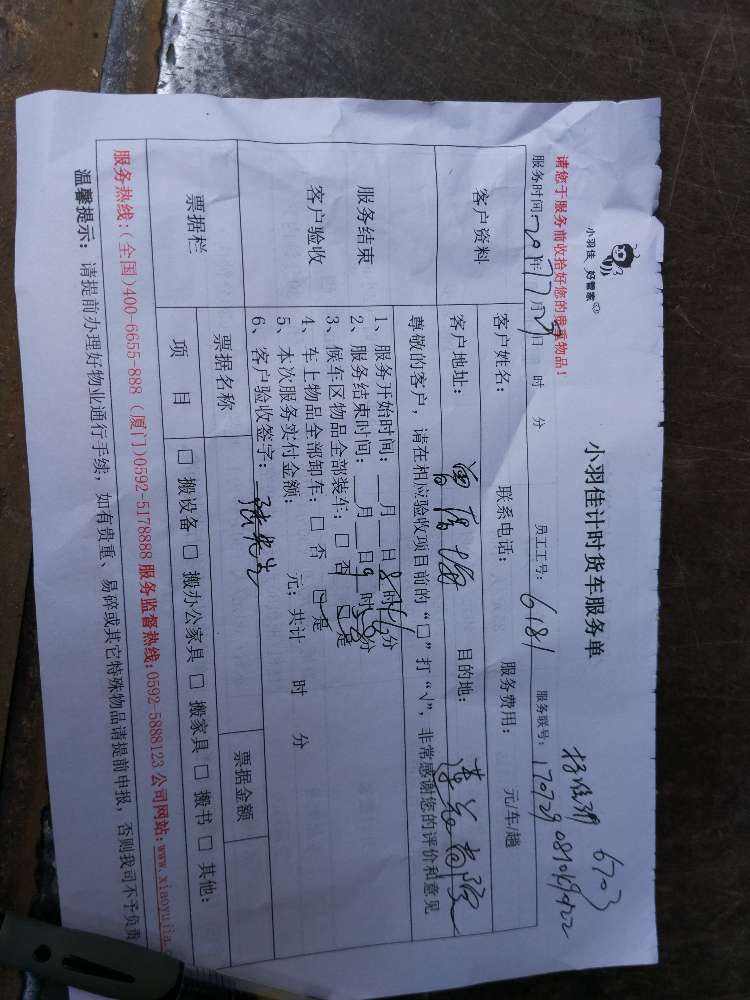 小羽佳 好管家
小羽佳计时货车服务单
6703
请您于服务前收拾好您的贵重物品!
服务时间: 2017年7月29日 时 分 员工工号: 6181 服务联号: 170729081049922
客户资料
客户姓名: 联系电话: 服务费用: 元/车/趟
客户地址: 曾厝垵 目的地:
服务结束
客户验收
尊敬的客户，请在相应验收项目前的“□”打“√”，非常感谢您的评价和意见
1、服务开始时间: 月 日8时 分
2、服务结束时间: 月 日9时 分
3、候车区物品全部装车: □ 否 □ 是
4、车上物品全部卸车: □ 否 □ 是
5、本次服务实付金额: 元; 共计 时 分
6、客户验收签字: 张先生
票据栏
票据名称 票据金额
项 目 □ 搬设备 □ 搬办公家具 □ 搬家具 □ 搬书 □ 其他:
服务热线:(全国)400-6655-888 (厦门)0592-5178888 服务监督热线:0592-5888123 公司网站:www.xiaoyujia.c
温馨提示: 请提前办理好物业通行手续，如有贵重、易碎或其它特殊物品请提前申报，否则我司不予负责